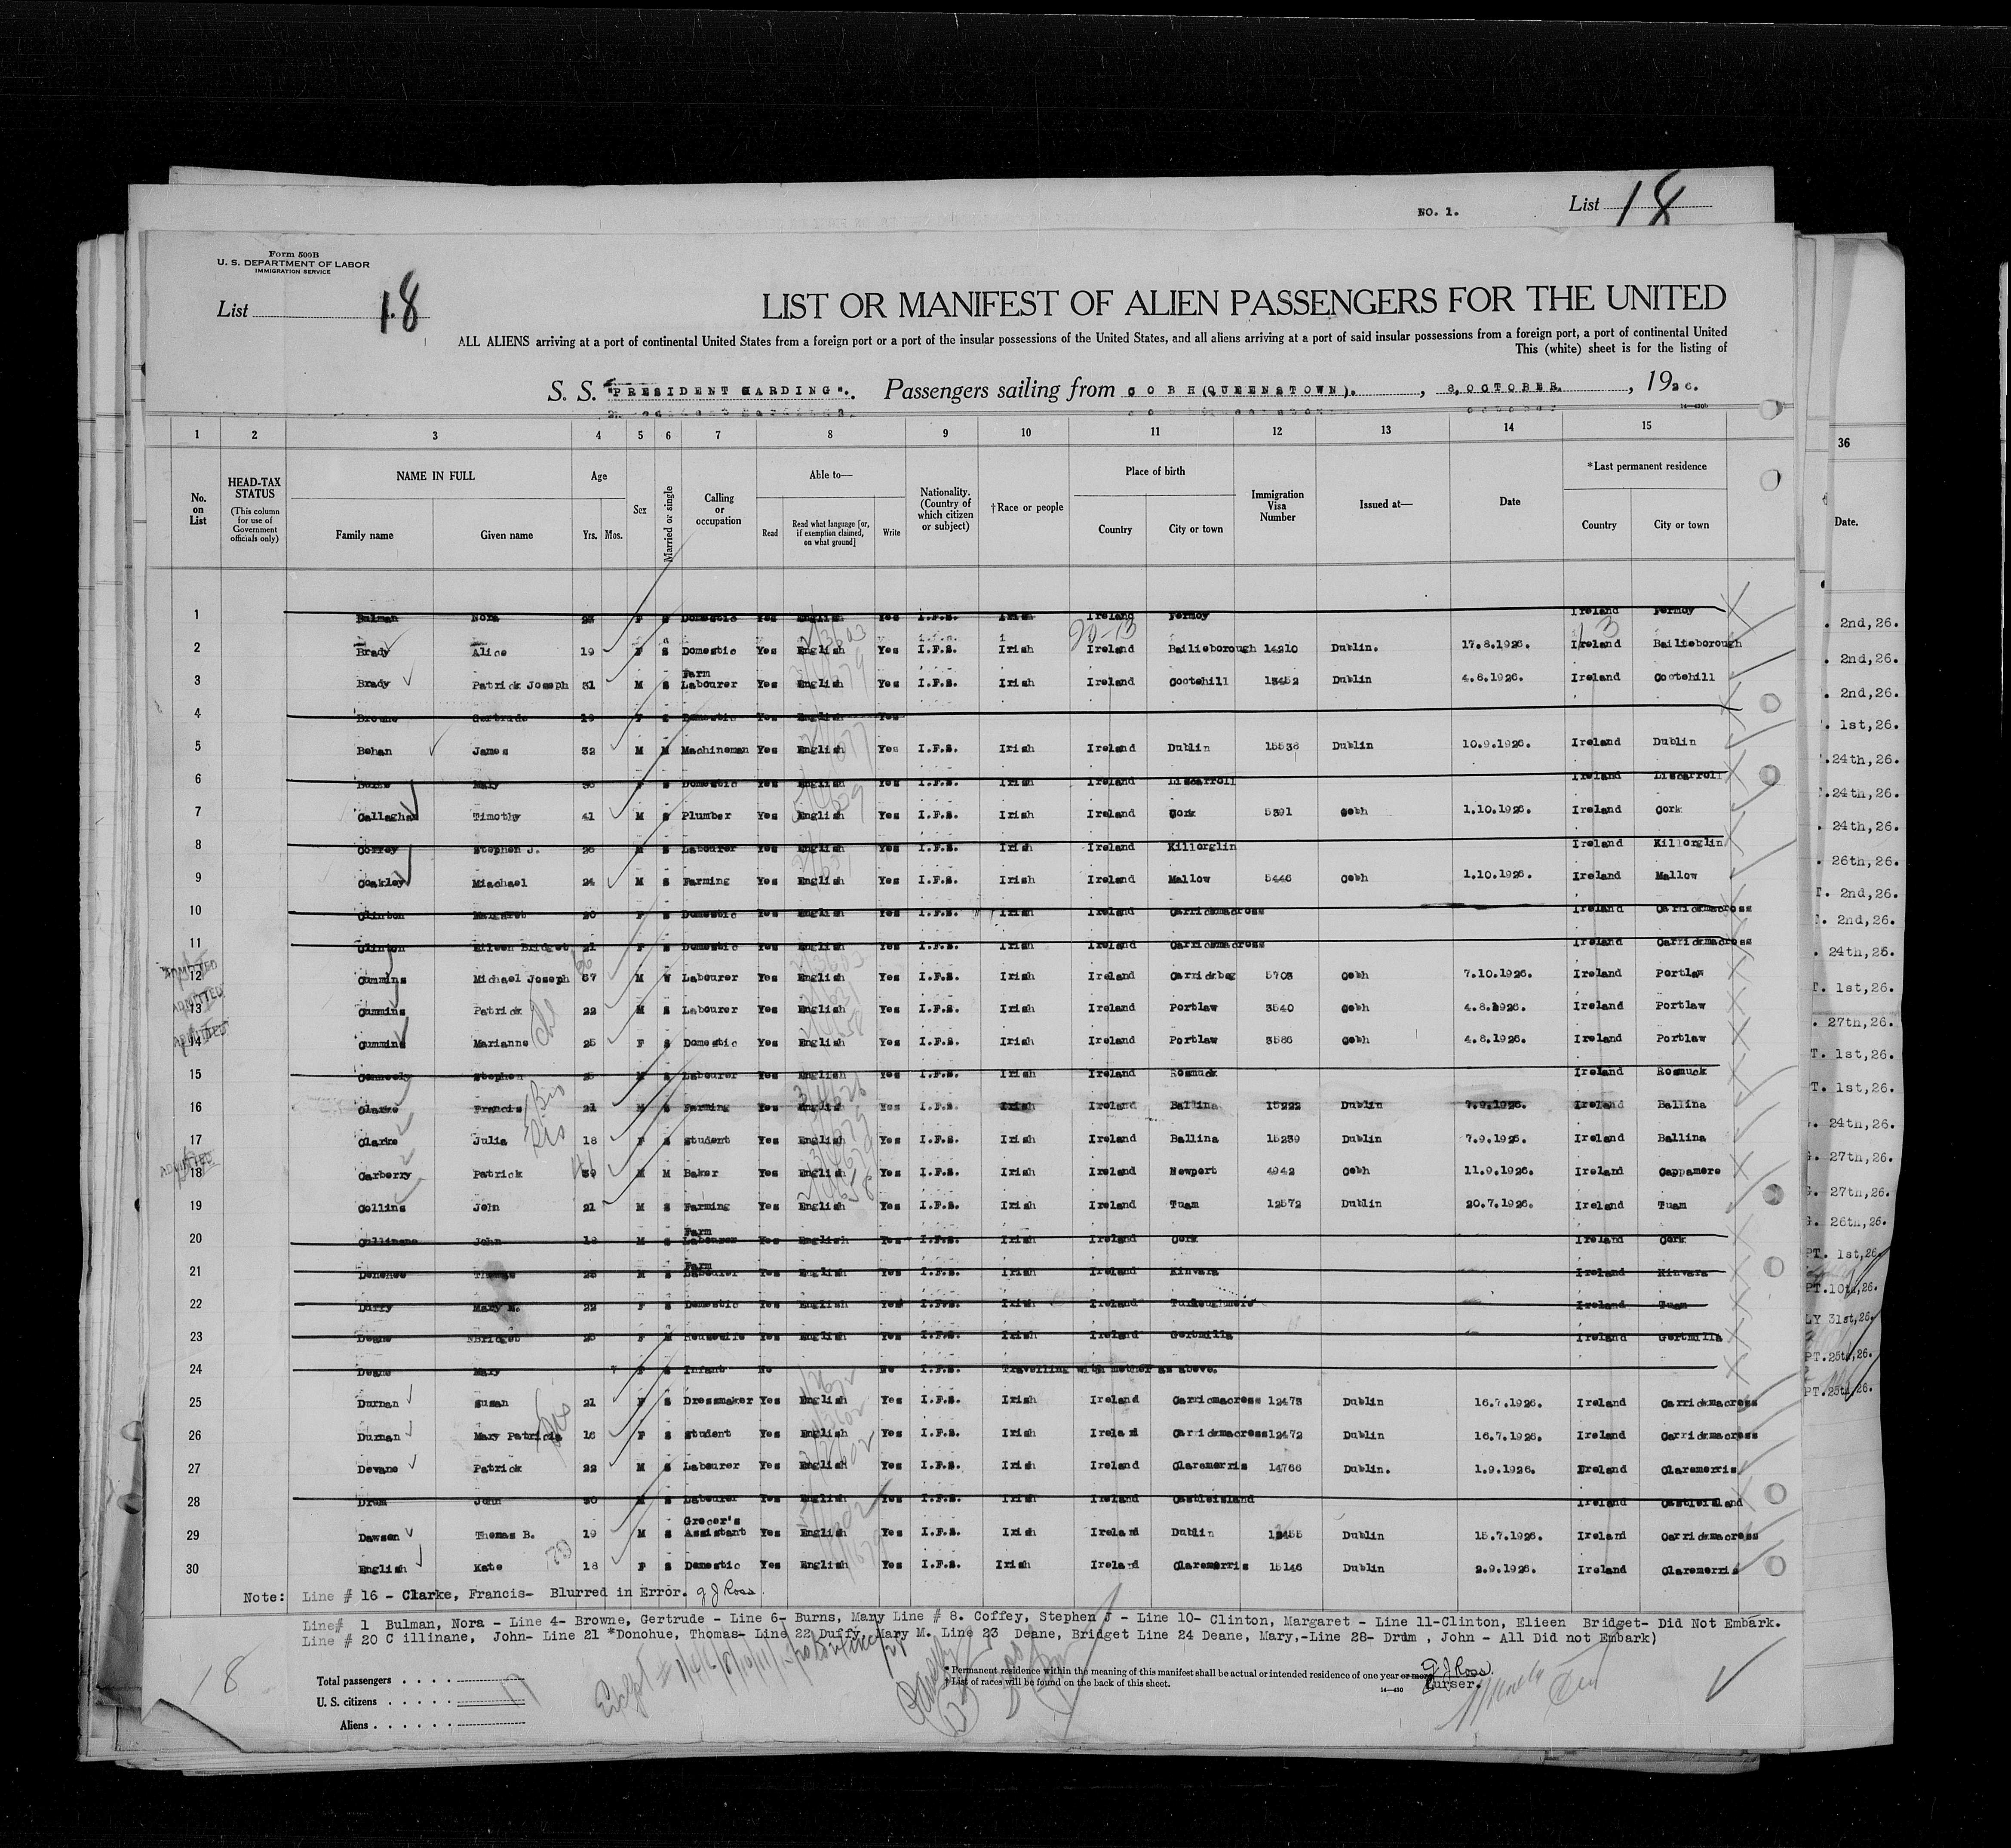 NO. 1. List 18
Form 500B
U. S. DEPARTMENT OF LABOR
IMMIGRATION SERVICE
List 18
LIST OR MANIFEST OF ALIEN PASSENGERS FOR THE UNITED
ALL ALIENS arriving at a port of continental United States from a foreign port or a port of the insular possessions of the United States, and all aliens arriving at a port of said insular possessions from a foreign port, a port of continental United
This (white) sheet is for the listing of
S. S. "PRESIDENT HARDING". Passengers sailing from COBH (QUEENSTOWN). , 8, OCTOBER. , 1926.
1 2 3 4 5 6 7 8 9 10 11 12 13 14 15
36
No. on List
HEAD-TAX STATUS
(This column for use of Government officials only)
NAME IN FULL
Family name Given name
Age
Yrs. Mos.
Sex
Married or single
Calling or occupation
Able to—
Read Read what language [or, if exemption claimed, on what ground] Write
Nationality. (Country of which citizen or subject)
†Race or people
Place of birth
Country City or town
Immigration Visa Number
Issued at—
Date
*Last permanent residence
Country City or town
Date.
1 Bulman Nora 23 F S Domestic Yes English Yes I.F.S. Irish Ireland Fermoy Ireland Fermoy
2 Brady Alice 19 F S Domestic Yes English Yes I.F.S. Irish Ireland Bailieborough 14210 Dublin. 17.8.1926. Ireland Bailieborough
3 Brady Patrick Joseph 31 M S Farm Labourer Yes English Yes I.F.S. Irish Ireland Cootehill 13452 Dublin 4.8.1926. Ireland Cootehill
4 Browne Gertrude 19 F S Domestic Yes English Yes
5 Behan James 32 M M Machineman Yes English Yes I.F.S. Irish Ireland Dublin 15536 Dublin 10.9.1926. Ireland Dublin
6 Burns Mary 36 F S Domestic Yes English Yes I.F.S. Irish Ireland Liscarroll Ireland Liscarroll
7 Callaghan Timothy 41 M S Plumber Yes English Yes I.F.S. Irish Ireland Cork 5391 Cobh 1.10.1926. Ireland Cork
8 Coffey Stephen J. 26 M S Labourer Yes English Yes I.F.S. Irish Ireland Killorglin Ireland Killorglin
9 Coakley Miachael 24 M S Farming Yes English Yes I.F.S. Irish Ireland Mallow 5446 Cobh 1.10.1926. Ireland Mallow
10 Clinton Margaret 20 F S Domestic Yes English Yes I.F.S. Irish Ireland Carrickmacross Ireland Carrickmacross
11 Clinton Eileen Bridget 21 F S Domestic Yes English Yes I.F.S. Irish Ireland Carrickmacross Ireland Carrickmacross
ADMITTED 12 Cummins Michael Joseph 67 M W Labourer Yes English Yes I.F.S. Irish Ireland Carrickbeg 5703 Cobh 7.10.1926. Ireland Portlaw
ADMITTED 13 Cummins Patrick 22 M S Labourer Yes English Yes I.F.S. Irish Ireland Portlaw 3540 Cobh 4.8.1926. Ireland Portlaw
ADMITTED 14 Cummins Marianne 25 F S Domestic Yes English Yes I.F.S. Irish Ireland Portlaw 3586 Cobh 4.8.1926. Ireland Portlaw
15 Conneely Stephen 25 M S Labourer Yes English Yes I.F.S. Irish Ireland Rosmuck Ireland Rosmuck
16 Clarke Francis 21 M S Farming Yes English Yes I.F.S. Irish Ireland Ballina 15222 Dublin 7.9.1926. Ireland Ballina
17 Clarke Julia 18 F S Student Yes English Yes I.F.S. Irish Ireland Ballina 15239 Dublin 7.9.1926. Ireland Ballina
ADMITTED 18 Carberry Patrick 39 M M Baker Yes English Yes I.F.S. Irish Ireland Newport 4942 Cobh 11.9.1926. Ireland Cappamore
19 Collins John 21 M S Farming Yes English Yes I.F.S. Irish Ireland Tuam 12572 Dublin 20.7.1926. Ireland Tuam
20 Cullinane John 18 M S Farm Labourer Yes English Yes I.F.S. Irish Ireland Cork Ireland Cork
21 Donohoe Thomas 25 M S Farm Labourer Yes English Yes I.F.S. Irish Ireland Kinvara Ireland Kinvara
22 Duffy Mary M. 22 F S Domestic English Yes I.F.S. Irish Ireland Ireland Tuam
23 Deane Bridget 26 F M Housewife Yes English Yes I.F.S. Irish Ireland Gortmilla Ireland Gortmilla
24 Deane Mary 7 F S Infant No No I.F.S. Travelling with mother as above.
25 Durnan Susan 21 F S Dressmaker Yes English Yes I.F.S. Irish Ireland Carricmacross 12473 Dublin 16.7.1926. Ireland Carrickmacross
26 Durnan Mary Patricia 16 F S Student Yes English Yes I.F.S. Irish Ireland Carrickmacross 12472 Dublin 16.7.1926. Ireland Carrickmacross
27 Devane Patrick 22 M S Labourer Yes English Yes I.F.S. Irish Ireland Claremorris 14766 Dublin. 1.9.1926. Ireland Claremorris
28 Drum John 30 M S Labourer Yes English Yes I.F.S. Irish Ireland Castleisland Ireland Castleisland
29 Dawson Thomas B. 19 M S Grocer's Assistant Yes English Yes I.F.S. Irish Ireland Dublin 12455 Dublin 15.7.1926. Ireland Carrickmacross
30 English Kate 18 F S Domestic Yes English Yes I.F.S. Irish Ireland Claremorris 15146 Dublin 2.9.1926. Ireland Claremorris
. 2nd,26.
. 2nd,26.
. 2nd,26.
. 1st,26.
.24th,26.
.24th,26.
. 24th,26.
. 26th,26.
T. 2nd,26.
T. 2nd,26.
. 24th,26.
T. 1st,26.
. 27th,26.
T. 1st,26.
T. 1st,26.
G. 24th,26.
G. 27th,26.
G. 27th,26.
G. 26th,26.
PT. 1st,26.
PT.10th,26.
LY 31st,26.
PT.25th,26.
PT.25th,26.
Note: Line # 16 - Clarke, Francis- Blurred in Error. G J Ross.
Line# 1 Bulman, Nora - Line 4- Browne, Gertrude - Line 6- Burns, Mary Line # 8. Coffey, Stephen J - Line 10- Clinton, Margaret - Line 11-Clinton, Elieen Bridget- Did Not Embark.
Line # 20 C illinane, John- Line 21 *Donohue, Thomas- Line 22 Duffy, Mary M. Line 23 Deane, Bridget Line 24 Deane, Mary,-Line 28- Drum , John - All Did not Embark)
18
Total passengers . . . .
U. S. citizens . . . . . 17
Aliens . . . . . .
* Permanent residence within the meaning of this manifest shall be actual or intended residence of one year or more.
† List of races will be found on the back of this sheet.
14—430
G J Ross.
Purser.